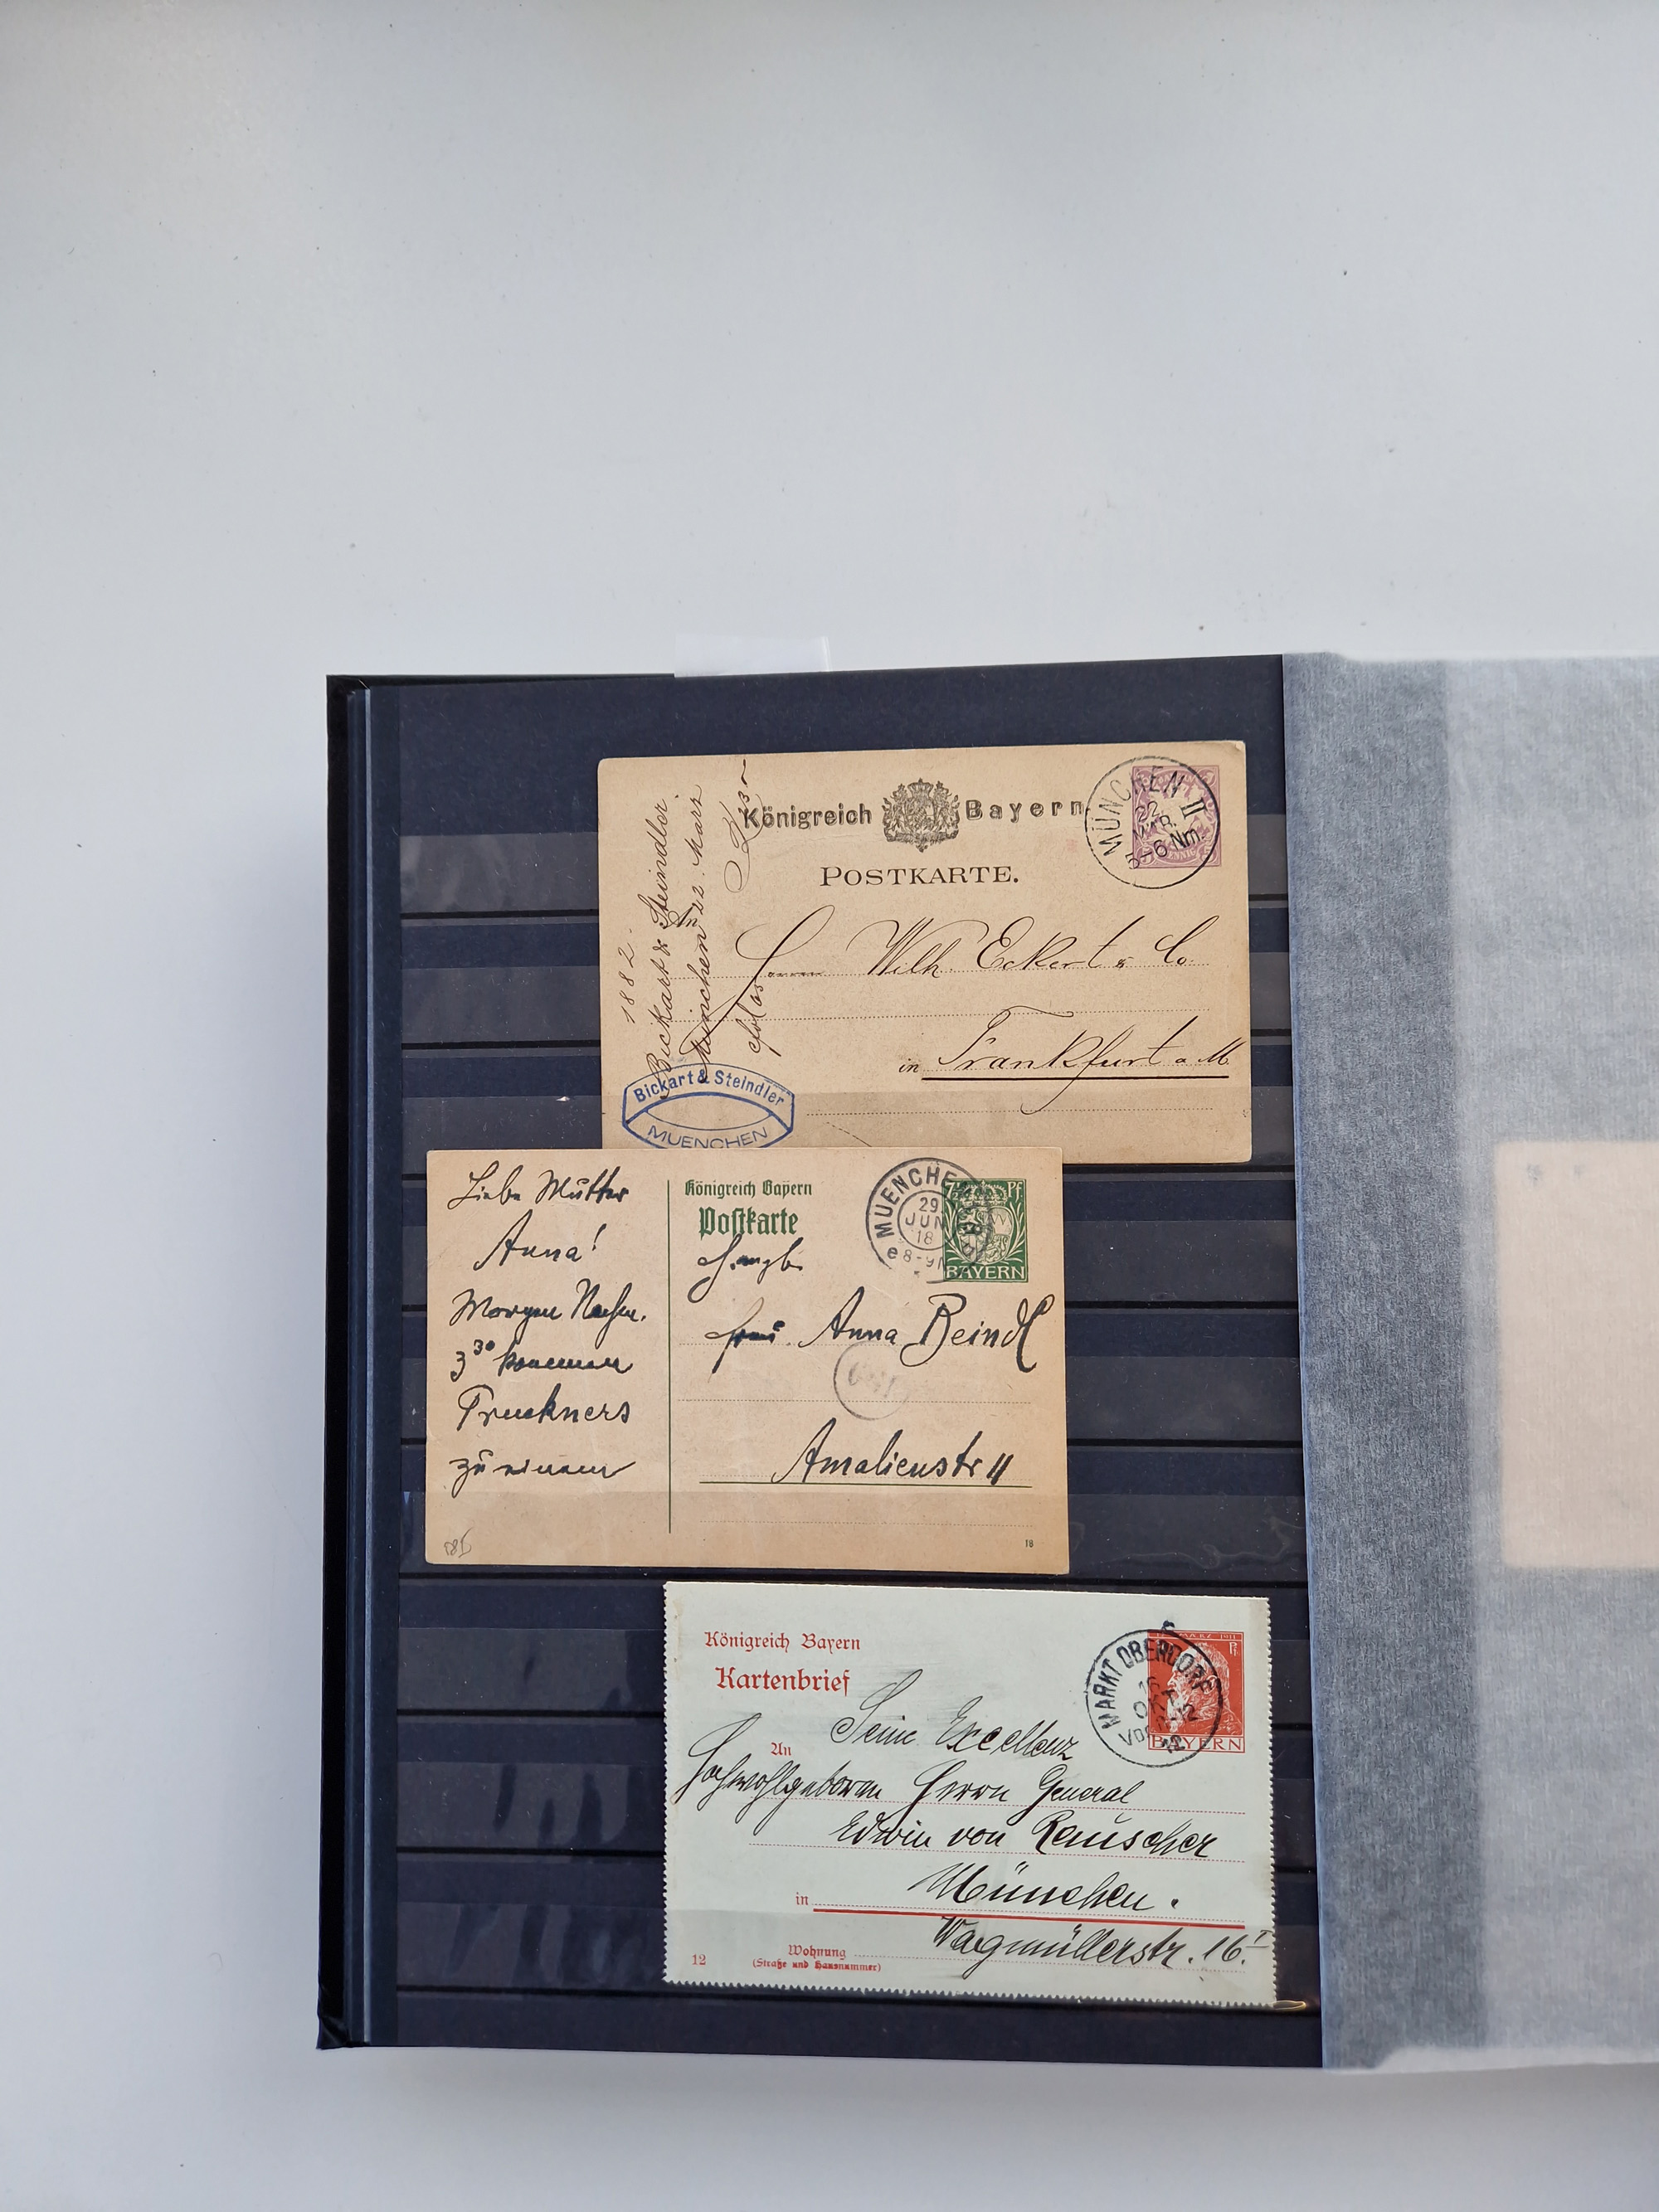 Königreich Bayern
POSTKARTE.
MÜNCHEN II
22.
MAR.
5-6 Nm.
1882.
Bickart & Steindler.
München 22. März
Wilh. Eckert & Co.
in Frankfurt a M
Bickart & Steindler
MUENCHEN
Liebe Mutter
Anna!
Morgen Nachm.
3³⁰ kommen
Pruckners
zu einem
Königreich Bayern
Postkarte
MUENCHEN
29
JUN
18
8-9N
Pf
BAYERN
Frau Anna Beindl
Amalienstr 11
18
Königreich Bayern
Kartenbrief
MARKT OBERDORF
OKT
12
Pf
BAYERN
An Seine Excellenz
Hochwohlgeboren Herrn General
Edwin von Rauscher
in München.
Wohnung Wagmüllerstr. 16 I.
(Straße und Hausnummer)
12